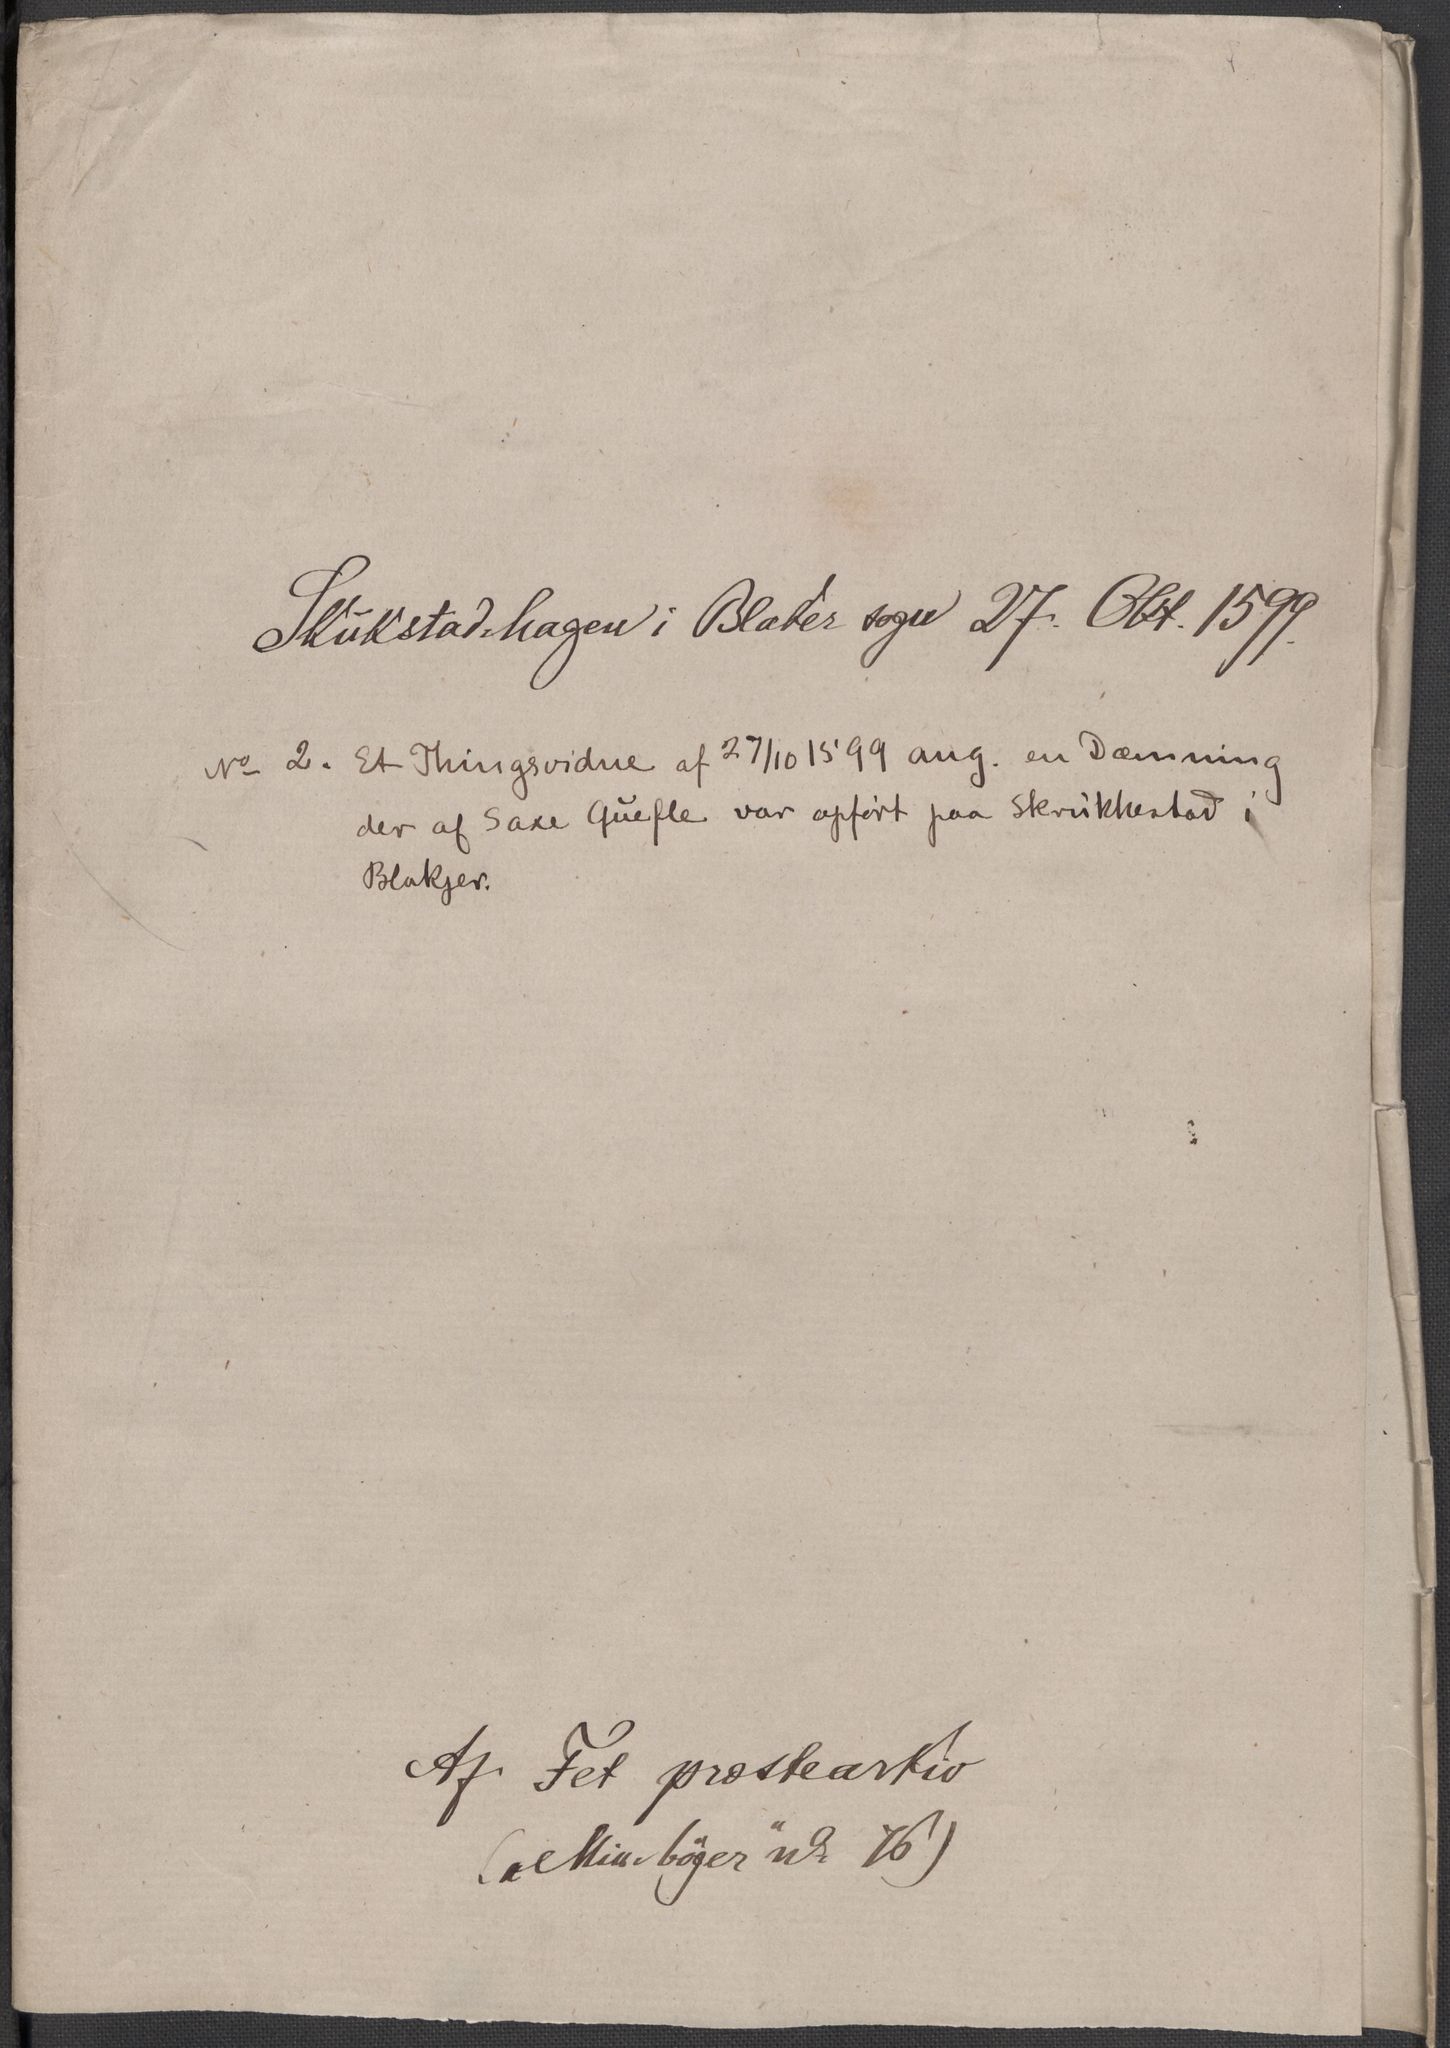 Skukstadhagen i Blaker sogn 27. Okt. 1599.
No 2. Et Thingsvidne af 27/10 1599 ang. en Dæmning
der af Saxe Guefle var opført paa Skrukkestad i
Blakjer.
Af Fet prestearkiv
("Min. bøger" no. 76)